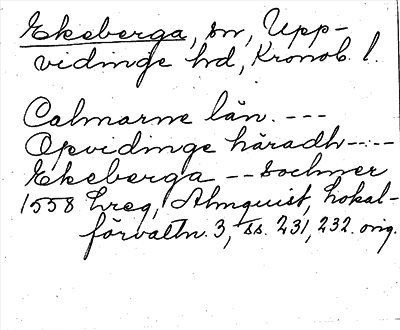 Ekeberga, sn, Upp-
vidinge hd, Kronob. l.
Calmarne län. ---
Opvidinge häradh-----
Ekeberga -- sochner
1558 Lreg, Almquist, Lokal-
förvaltn. 3, ss. 231, 232. orig.